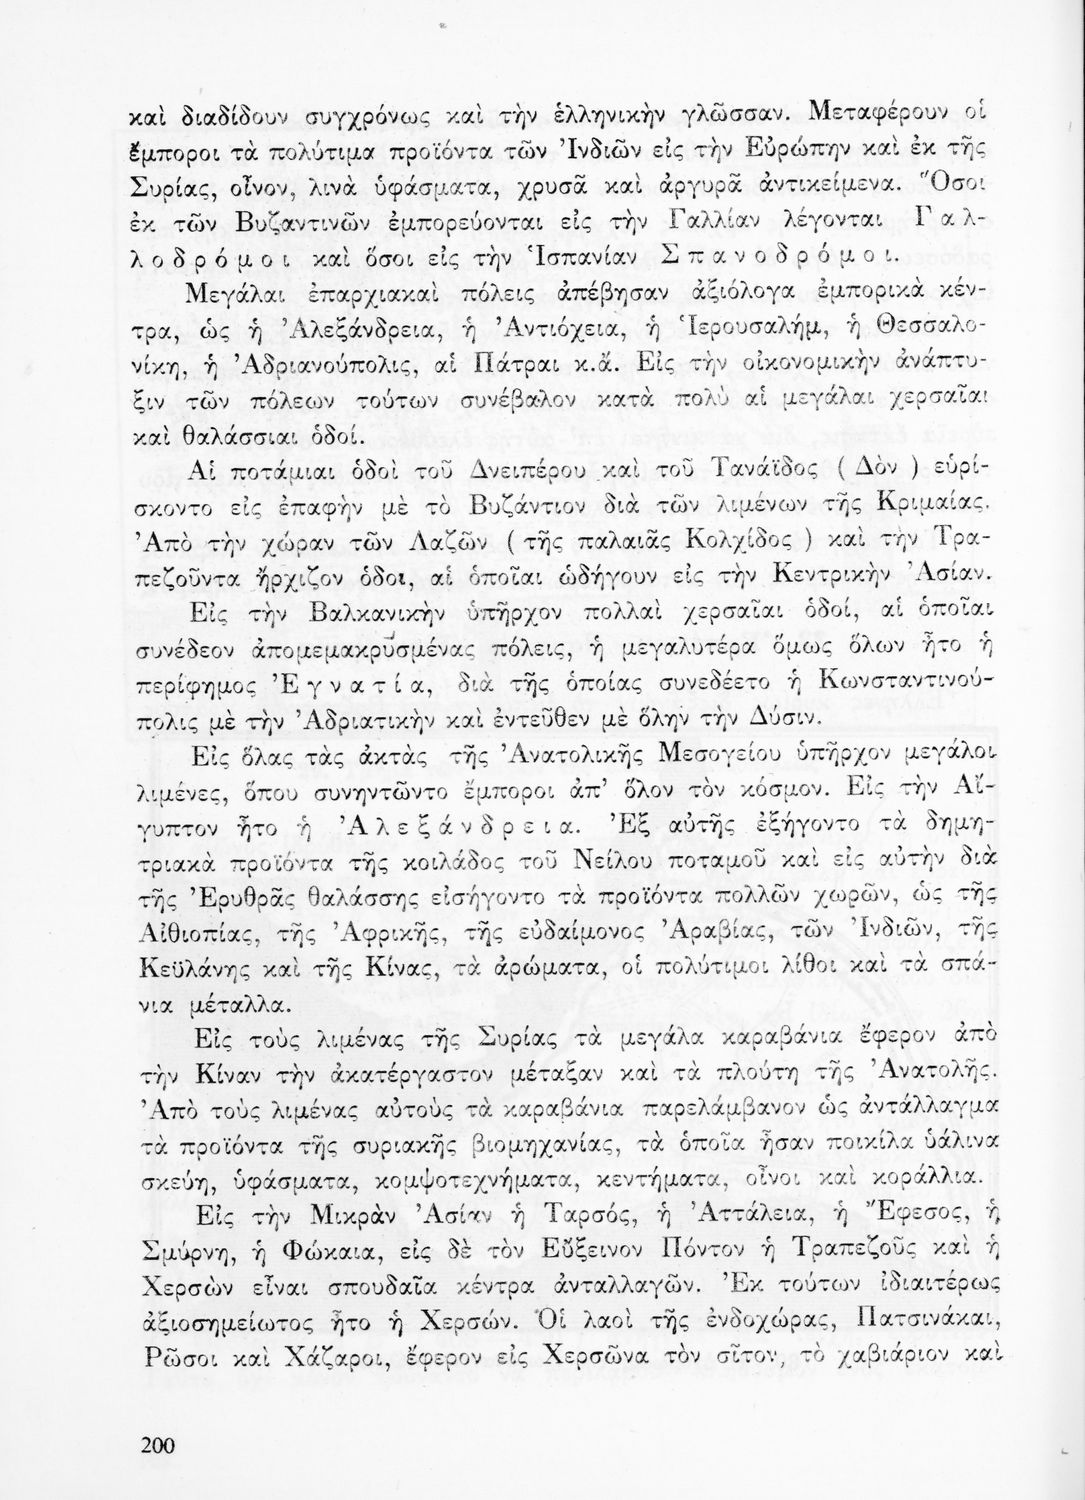 καὶ διαδίδουν συγχρόνως καὶ τὴν ἑλληνικὴν γλῶσσαν. Μεταφέρουν οἱ
ἔμποροι τὰ πολύτιμα προϊόντα τῶν Ἰνδιῶν εἰς τὴν Εὐρώπην καὶ ἐκ τῆς
Συρίας, οἶνον, λινὰ ὑφάσματα, χρυσᾶ καὶ ἀργυρᾶ ἀντικείμενα. Ὅσοι
ἐκ τῶν Βυζαντινῶν ἐμπορεύονται εἰς τὴν Γαλλίαν λέγονται Γαλ-
λοδρόμοι καὶ ὅσοι εἰς τὴν Ἱσπανίαν Σπανοδρόμοι.
Μεγάλαι ἐπαρχιακαὶ πόλεις ἀπέβησαν ἀξιόλογα ἐμπορικὰ κέν-
τρα, ὡς ἡ Ἀλεξάνδρεια, ἡ Ἀντιόχεια, ἡ Ἱερουσαλήμ, ἡ Θεσσαλο-
νίκη, ἡ Ἀδριανούπολις, αἱ Πάτραι κ.ἄ. Εἰς τὴν οἰκονομικὴν ἀνάπτυ-
ξιν τῶν πόλεων τούτων συνέβαλον κατὰ πολὺ αἱ μεγάλαι χερσαῖαι
καὶ θαλάσσιαι ὁδοί.
Αἱ ποτάμιαι ὁδοὶ τοῦ Δνειπέρου καὶ τοῦ Τανάϊδος ( Δὸν ) εὑρί-
σκοντο εἰς ἐπαφὴν μὲ τὸ Βυζάντιον διὰ τῶν λιμένων τῆς Κριμαίας.
Ἀπὸ τὴν χώραν τῶν Λαζῶν ( τῆς παλαιᾶς Κολχίδος ) καὶ τὴν Τρα-
πεζοῦντα ἤρχιζον ὁδοι, αἱ ὁποῖαι ὡδήγουν εἰς τὴν Κεντρικὴν Ἀσίαν.
Εἰς τὴν Βαλκανικὴν ὑπῆρχον πολλαὶ χερσαῖαι ὁδοί, αἱ ὁποῖαι
συνέδεον ἀπομεμακρυσμένας πόλεις, ἡ μεγαλυτέρα ὅμως ὅλων ἦτο ἡ
περίφημος Ἐγνατία, διὰ τῆς ὁποίας συνεδέετο ἡ Κωνσταντινού-
πολις μὲ τὴν Ἀδριατικὴν καὶ ἐντεῦθεν μὲ ὅλην τὴν Δύσιν.
Εἰς ὅλας τὰς ἀκτὰς τῆς Ἀνατολικῆς Μεσογείου ὑπῆρχον μεγάλοι
λιμένες, ὅπου συνηντῶντο ἔμποροι ἀπ’ ὅλον τὸν κόσμον. Εἰς τὴν Αἴ-
γυπτον ἦτο ἡ Ἀλεξάνδρεια. Ἐξ αὐτῆς ἐξήγοντο τὰ δημη-
τριακὰ προϊόντα τῆς κοιλάδος τοῦ Νείλου ποταμοῦ καὶ εἰς αὐτὴν διὰ
τῆς Ἐρυθρᾶς θαλάσσης εἰσήγοντο τὰ προϊόντα πολλῶν χωρῶν, ὡς τῆς
Αἰθιοπίας, τῆς Ἀφρικῆς, τῆς εὐδαίμονος Ἀραβίας, τῶν Ἰνδιῶν, τῆς
Κεϋλάνης καὶ τῆς Κίνας, τὰ ἀρώματα, οἱ πολύτιμοι λίθοι καὶ τὰ σπά-
νια μέταλλα.
Εἰς τοὺς λιμένας τῆς Συρίας τὰ μεγάλα καραβάνια ἔφερον ἀπὸ
τὴν Κίναν τὴν ἀκατέργαστον μέταξαν καὶ τὰ πλούτη τῆς Ἀνατολῆς.
Ἀπὸ τοὺς λιμένας αὐτοὺς τὰ καραβάνια παρελάμβανον ὡς ἀντάλλαγμα
τὰ προϊόντα τῆς συριακῆς βιομηχανίας, τὰ ὁποῖα ἦσαν ποικίλα ὑάλινα
σκεύη, ὑφάσματα, κομψοτεχνήματα, κεντήματα, οἶνοι καὶ κοράλλια.
Εἰς τὴν Μικρὰν Ἀσίαν ἡ Ταρσός, ἡ Ἀττάλεια, ἡ Ἔφεσος, ἡ
Σμύρνη, ἡ Φώκαια, εἰς δὲ τὸν Εὔξεινον Πόντον ἡ Τραπεζοῦς καὶ ἡ
Χερσὼν εἶναι σπουδαῖα κέντρα ἀνταλλαγῶν. Ἐκ τούτων ἰδιαιτέρως
ἀξιοσημείωτος ἦτο ἡ Χερσών. Οἱ λαοὶ τῆς ἐνδοχώρας, Πατσινάκαι,
Ρῶσοι καὶ Χάζαροι, ἔφερον εἰς Χερσῶνα τὸν σῖτον, τὸ χαβιάριον καὶ
200